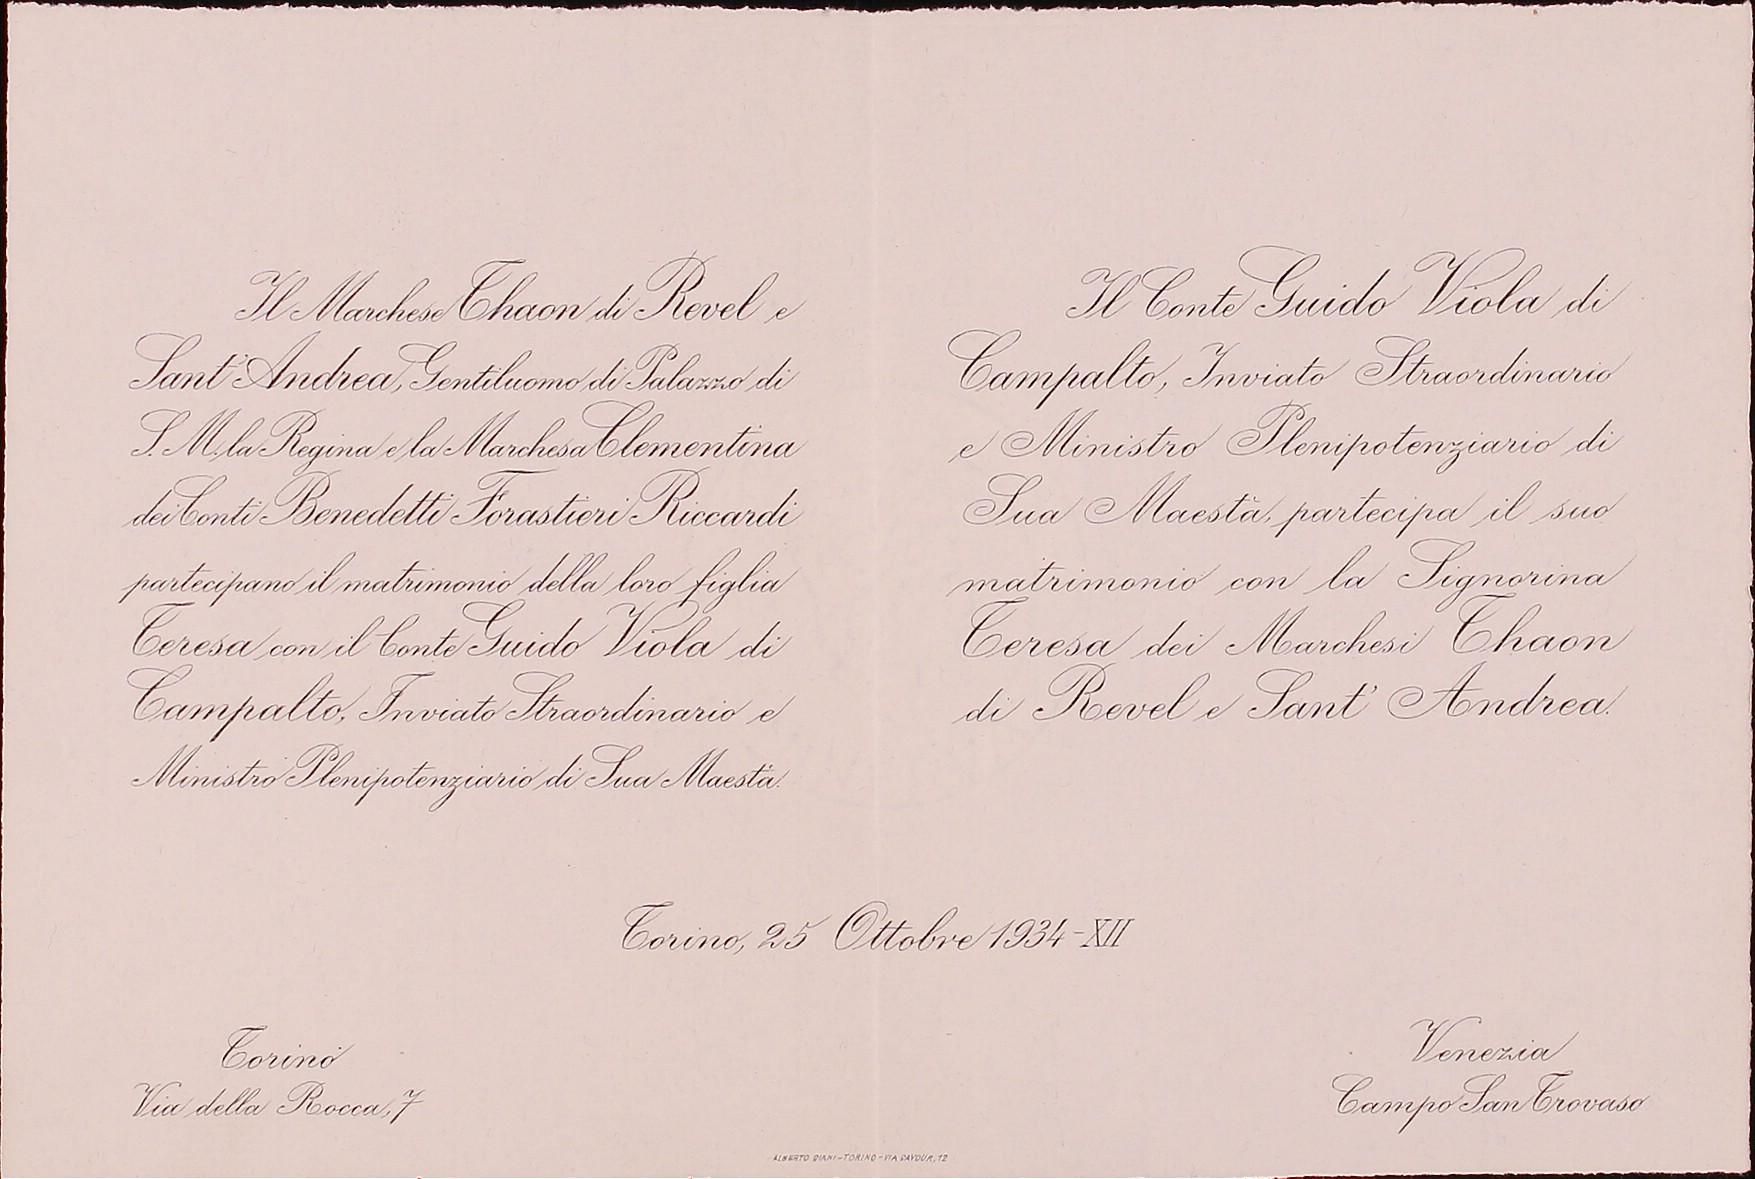 Il Marchese Thaon di Revel e
Sant'Andrea, Gentiluomo di Palazzo di
S. M. la Regina e la Marchesa Clementina
dei Conti Benedetti Forastieri Riccardi
partecipano il matrimonio della loro figlia
Teresa con il Conte Guido Viola di
Campalto, Inviato Straordinario e
Ministro Plenipotenziario di Sua Maestà.
Il Conte Guido Viola di
Campalto, Inviato Straordinario
e Ministro Plenipotenziario di
Sua Maestà, partecipa il suo
matrimonio con la Signorina
Teresa dei Marchesi Thaon
di Revel e Sant' Andrea.
Torino, 25 Ottobre 1934-XII
Torino
Via della Rocca, 7
Venezia
Campo San Trovaso
ALBERTO DIANI-TORINO-VIA CAVOUR, 12